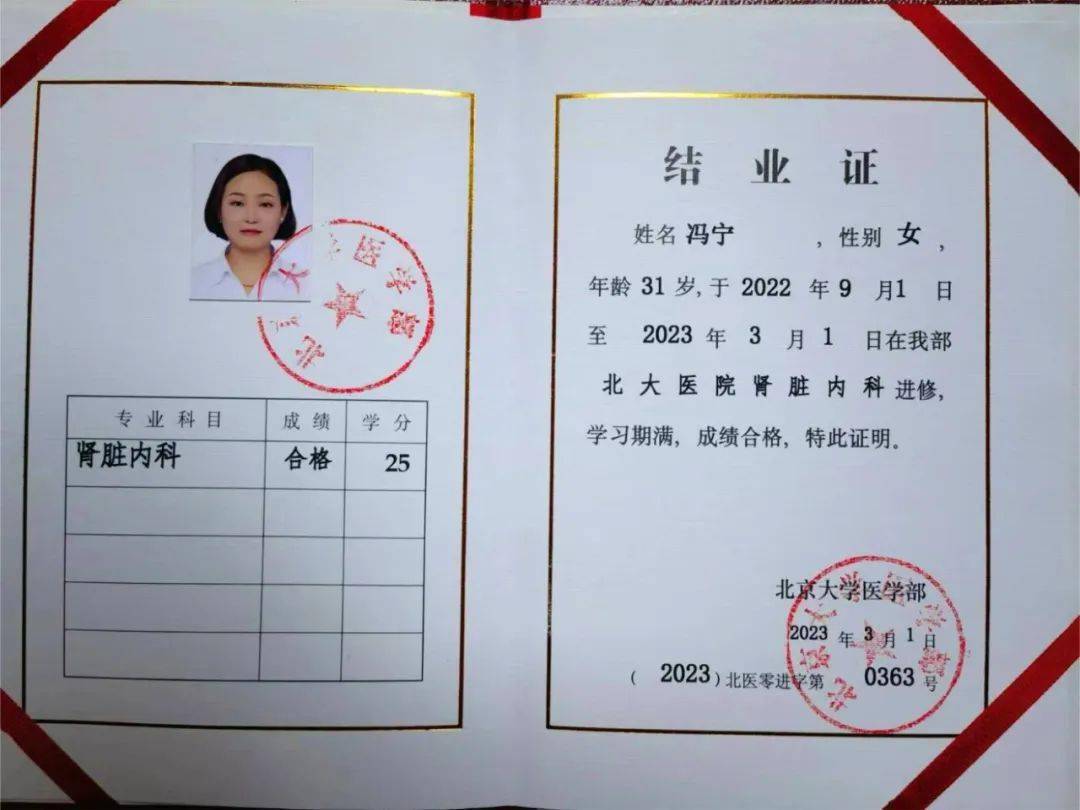 北京大学医学部
专业科目 成绩 学分
肾脏内科 合格 25
结业证
姓名 冯宁 ，性别 女，
年龄 31 岁，于 2022 年 9 月 1 日
至 2023 年 3 月 1 日在我部
北大医院肾脏内科进修，
学习期满，成绩合格，特此证明。
北京大学医学部
2023 年 3 月 1 日
（2023）北医零进字第 0363 号
北京大学医学部